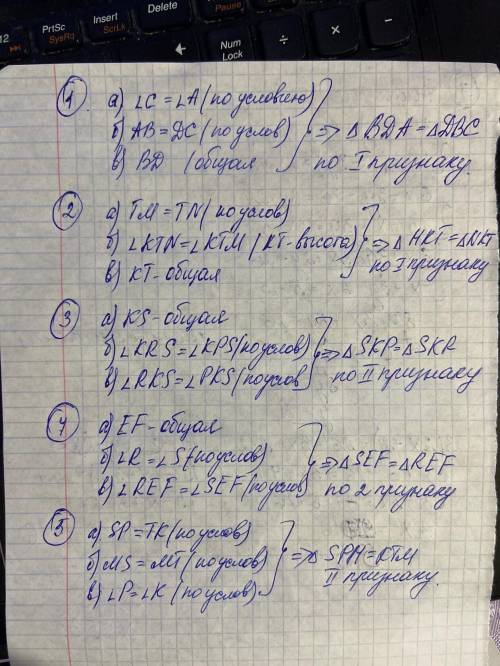 12
PrtSc
SysRq
Insert
ScrLk
Delete
Pause
Num
Lock
1 а) ∠C = ∠A (по условию)
б) AB = DC (по услов) => △BDA = △DBC
в) BD (общая по I признаку.
2 а) TM = TN (по услов)
б) ∠KTN = ∠KTM (KT - высота) => △HKT = △NKT
в) KT - общая по I признаку
3 а) KS - общая
б) ∠KRS = ∠KPS (по услов) => △SKP = △SKR
в) ∠RKS = ∠PKS (по услов по II признаку
4 а) EF - общая
б) ∠R = ∠S (по услов) => △SEF = △REF
в) ∠REF = ∠SEF (по услов) по 2 признаку
5 а) SP = TK (по услов)
б) MS = MT (по услов) => △ SPH = KTM
в) ∠P = ∠K (по услов) II признаку.